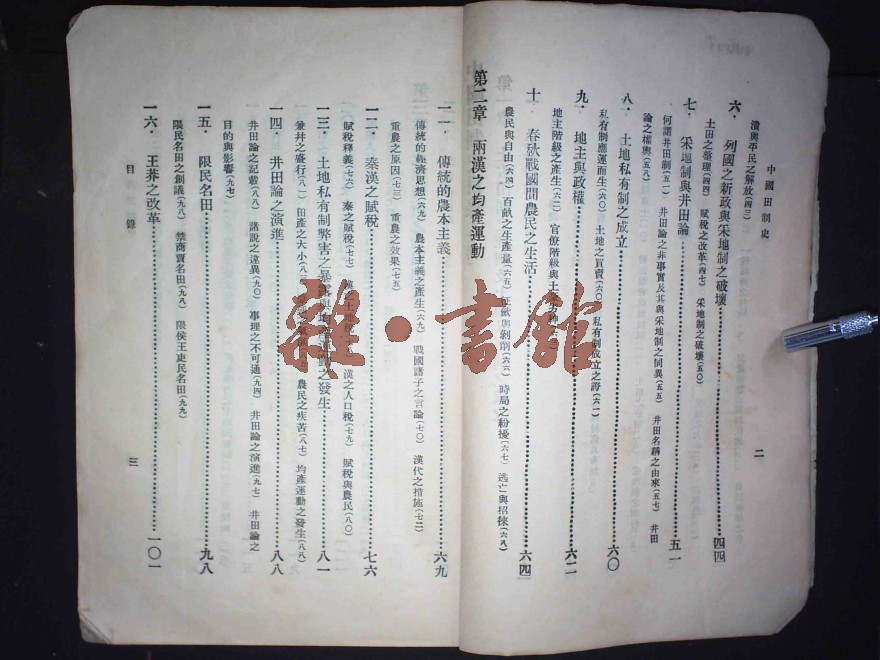 中國田制史
二
潰與平民之解放(四三)
六．列國之新政與采地制之破壞……四四
土田之整理(四四)　賦稅之改革(四七)　采地制之破壞(五〇)
七．采地制與井田論……五一
何謂井田制(五一)　井田論之非事實及其與采地制之同異(五五)　井田名稱之由來(五七)　井田
論之權輿(五八)
八．土地私有制之成立……六〇
私有制應運而生(六〇)　土地之買賣(六〇)　私有制成立之證(六一)
九．地主與政權……六二
地主階級之產生(六二)　官僚階級與土
十．春秋戰國間農民之生活……六四
農民與自由(六四)　百畝之生產量(六五)　剝削(六六)　時局之紛擾(六七)　逃亡與招徠(六八)
第二章　兩漢之均產運動
一一．傳統的農本主義……六九
傳統的經濟思想(六九)　農本主義之產生(六九)　戰國諸子之言論(七〇)　漢代之措施(七二)
重農之原因(七三)　重農之效果(七五)
一二．秦漢之賦稅……七六
賦稅釋義(七六)　秦之賦稅(七七)　漢之人口稅(七九)　賦稅與農民(八〇)
一三．土地私有制弊害之暴露與均產運動之發生……八一
兼并之盛行(八一)　田產之大小(八三)　農民之疾苦(八七)　均產運動之發生(八八)
一四．井田論之演進……八八
井田論之記載(八八)　諸說之違異(九〇)　事理之不可通(九四)　井田論之演進(九七)　井田論之
目的與影響(九七)
一五．限民名田……九八
限民名田之創議(九八)　禁商賈名田(九八)　限侯王吏民名田(九九)
一六．王莽之改革……一〇一
目錄
三
雜·書館